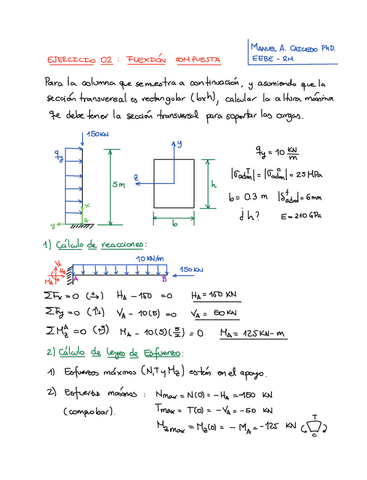 EJERCICIO 02 : FLEXIÓN COMPUESTA
MANUEL A. CAICEDO PhD.
EEBE - RM
Para la columna que se muestra a continuación, y asumiendo que la
sección transversal es rectangular (b×h), calcular la altura máxima
que debe tener la sección transversal para soportar las cargas.
150KN
qy
5m
x
y
z
y
z
h
b
qy = 10 KN/m
|σadm^T| = |σadm^C| = 25 MPa
b = 0.3 m |δadm^t| = 6mm
¿h? E = 210 GPa
1) Cálculo de reacciones:
10 KN/m
150KN
MA
HA
VA
A
B
ΣFx = 0 (→+) HA - 150 = 0 HA = 150 KN
ΣFy = 0 (↑+) VA - 10(5) = 0 VA = 50 KN
ΣMz^A = 0 (+↺) MA - 10(5)(5/2) = 0 MA = 125 KN-m
2) Cálculo de leyes de Esfuerzo:
1) Esfuerzos máximos (N,T y Mz) están en el apoyo.
2) Esfuerzos máximos : Nmax = N(0) = -HA = -150 KN
(comprobar). Tmax = T(0) = -VA = -50 KN
Mz max = Mz(0) = - MA = -125 KN
T
C